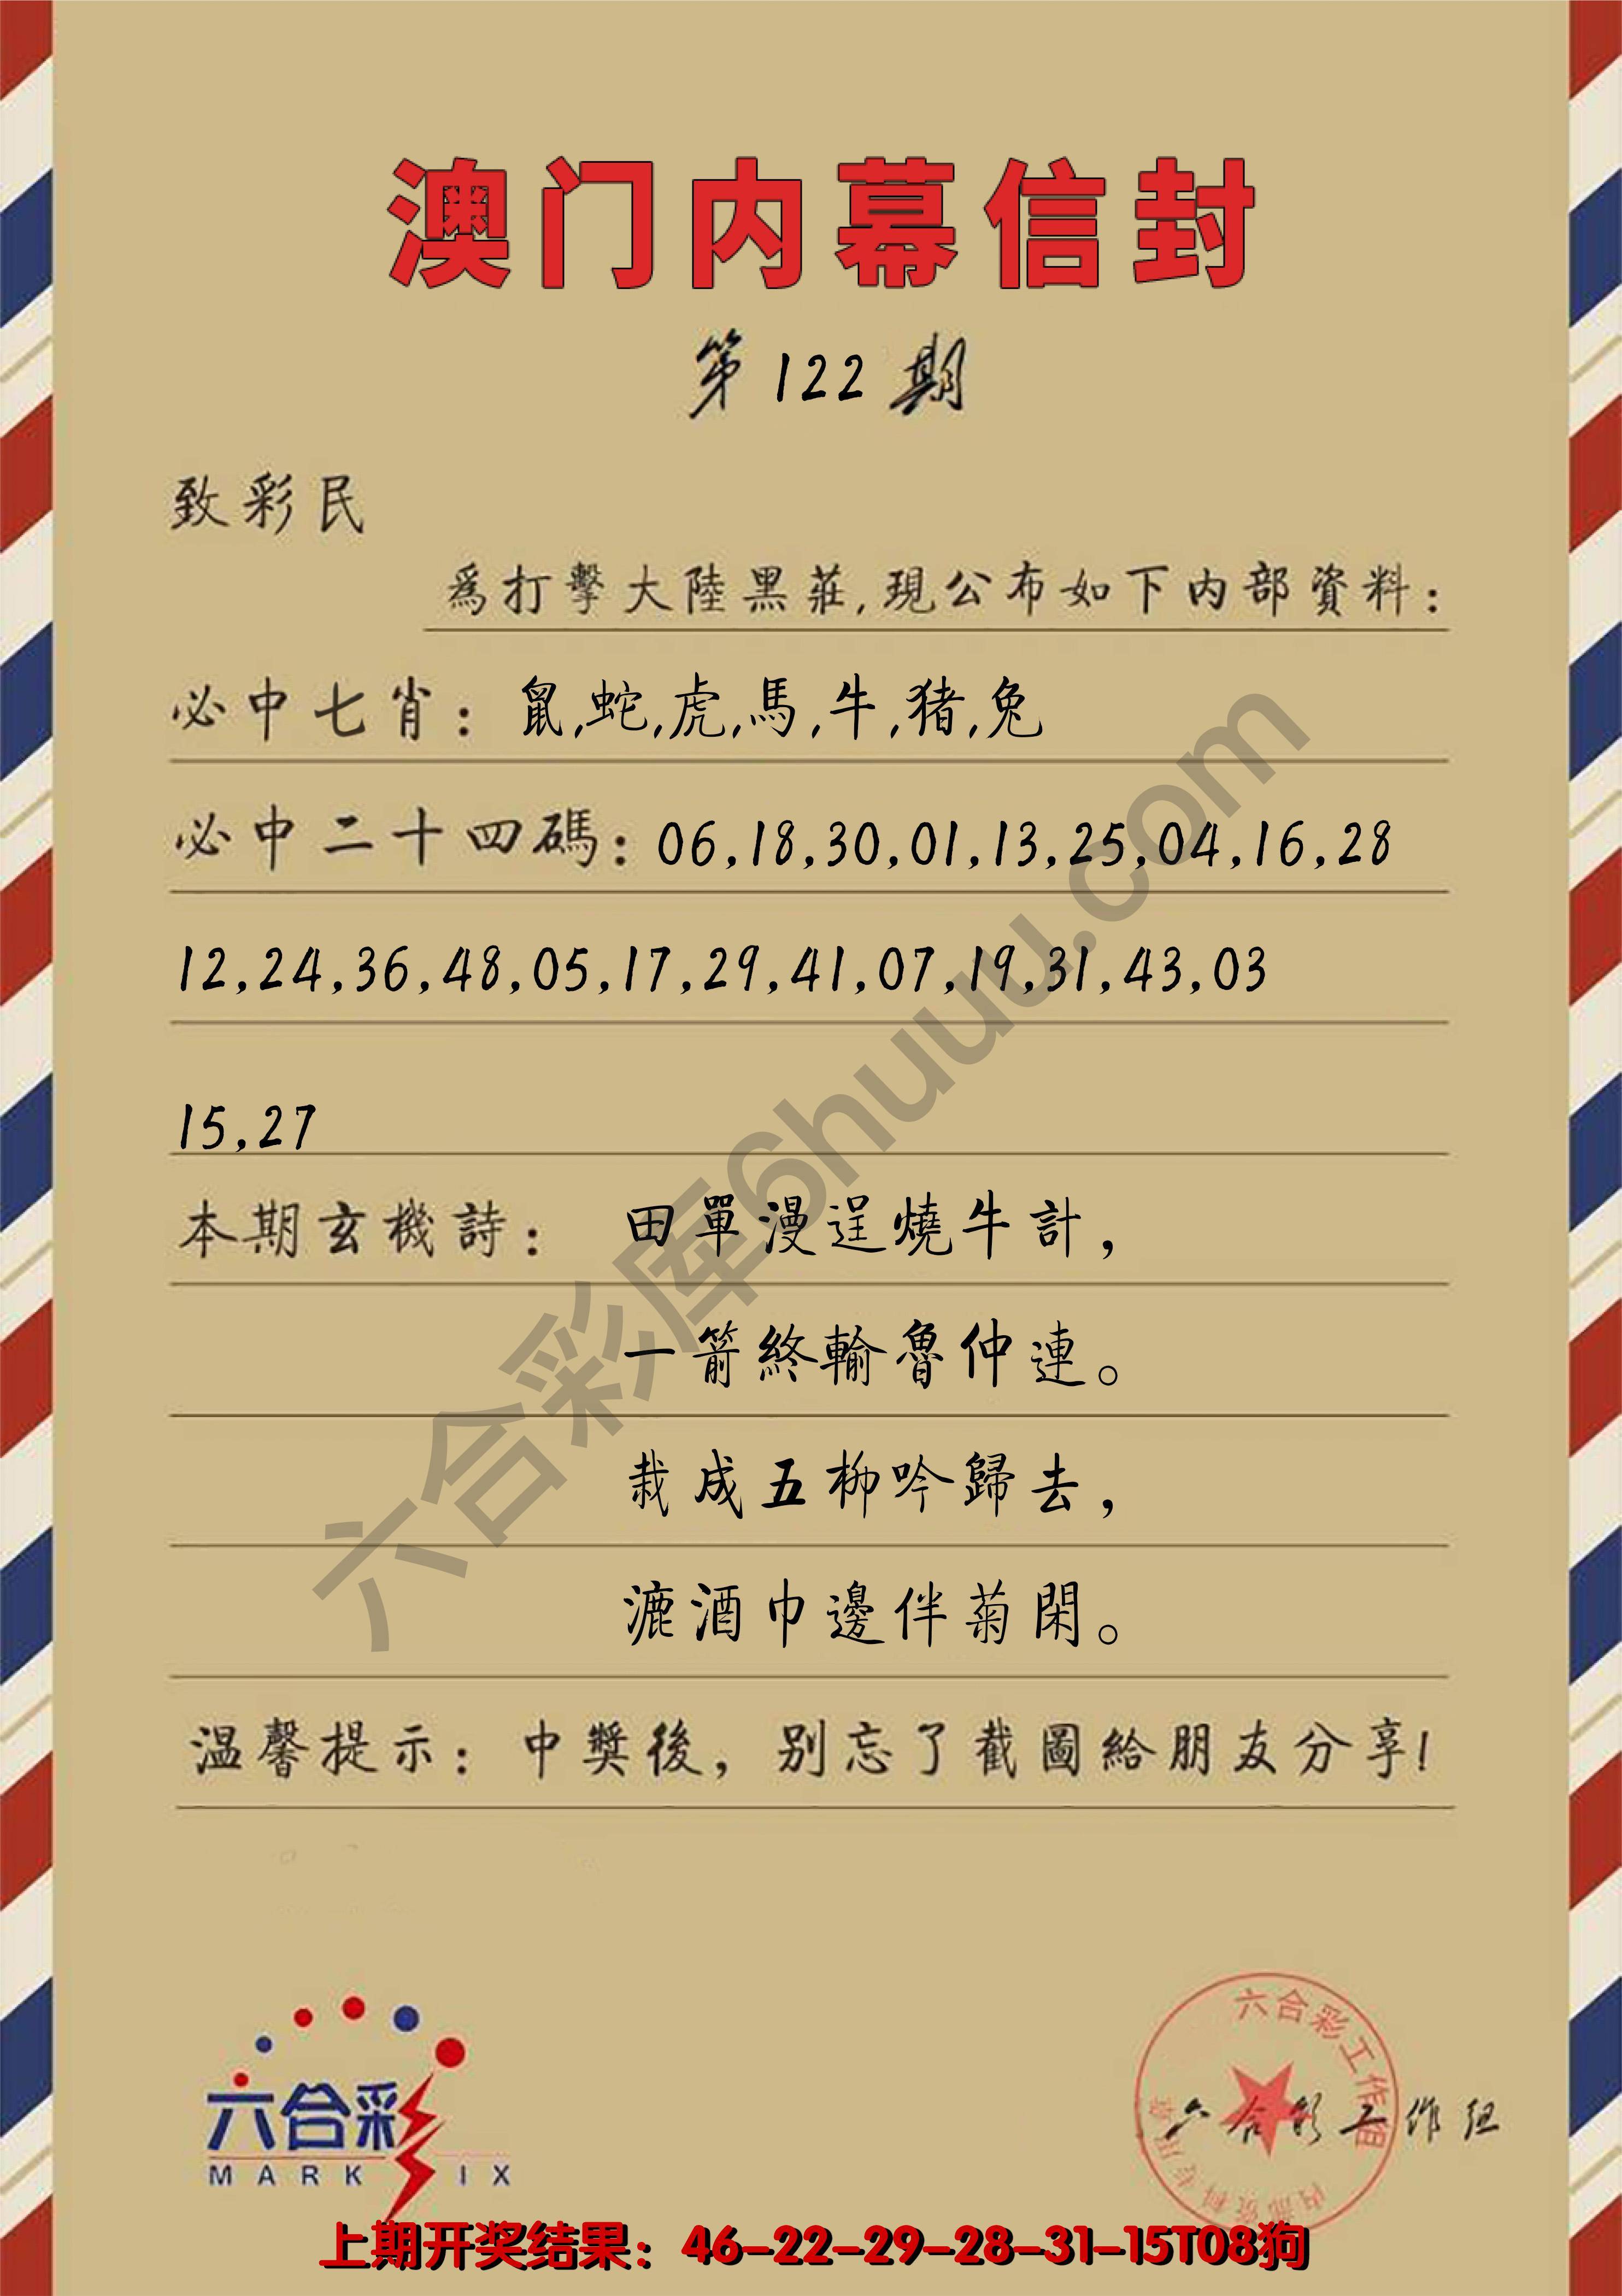 澳门内幕信封
第122期
致彩民
爲打擊大陸黑莊,現公布如下内部資料:
必中七肖: 鼠,蛇,虎,馬,牛,猪,兔
必中二十四碼: 06,18,30,01,13,25,04,16,28
12,24,36,48,05,17,29,41,07,19,31,43,03
15,27
本期玄機詩: 田單漫逞燒牛計,
一箭終輸魯仲連。
栽成五柳吟歸去,
漉酒巾邊伴菊閑。
温馨提示: 中獎後, 别忘了截圖給朋友分享!
六合彩库6huuu.com
六合彩
MARK IX
六合彩工作组
内部资料专用章
六合彩工作组
上期开奖结果: 46-22-29-28-31-15T08狗